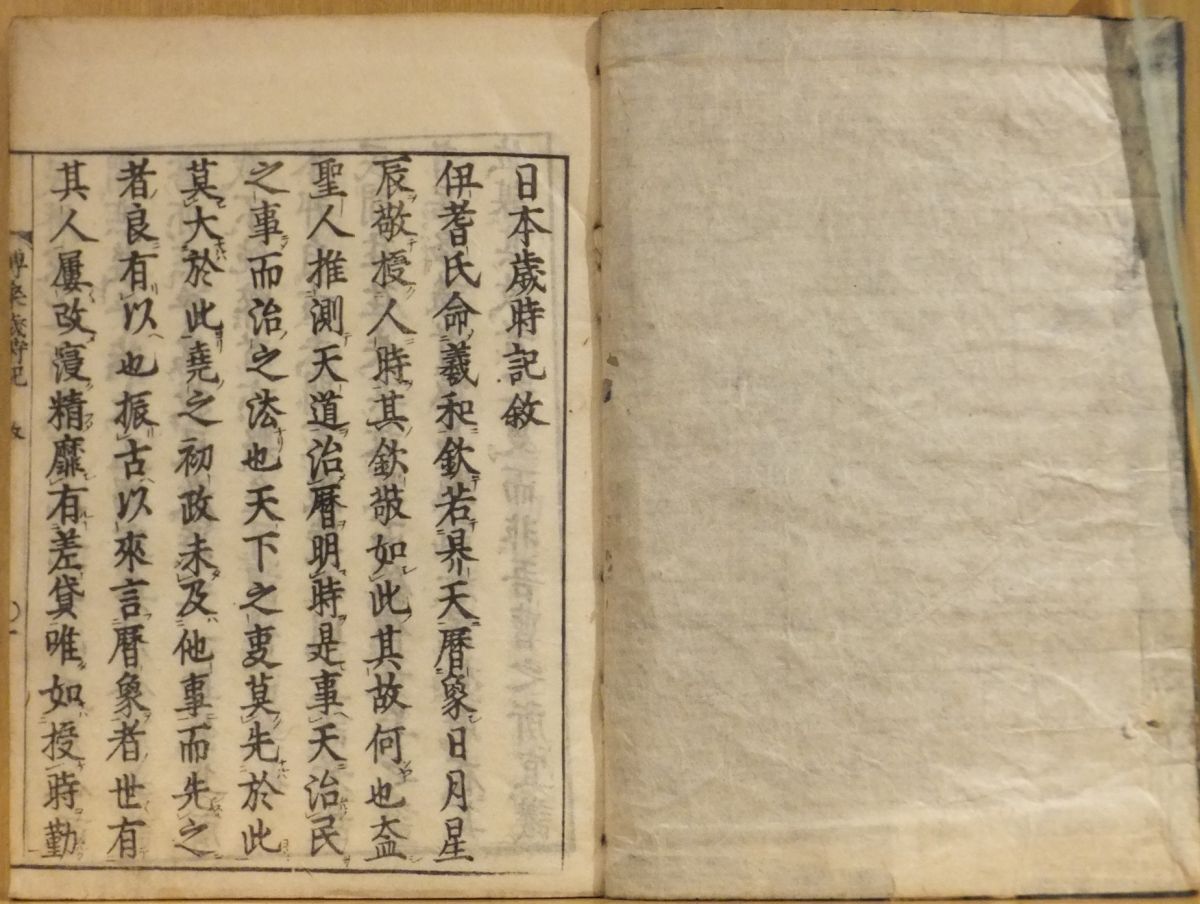 日本歳時記敘
伊耆氏命羲和欽若昦天曆象日月星
辰敬授人時其欽敬如此其故何也盍
聖人推測天道治曆明時是事天治民
之事而治之法也天下之叓莫先於此
莫大於此堯之初政未及他事而先之
者良有以也振古以來言曆象者世有
其人屢改寖精靡有差貸唯如授時勤
歳時記